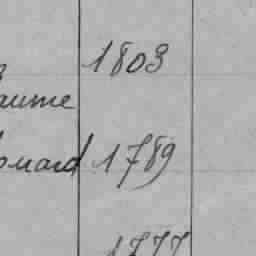 1803
aume
ouard 1789
1777